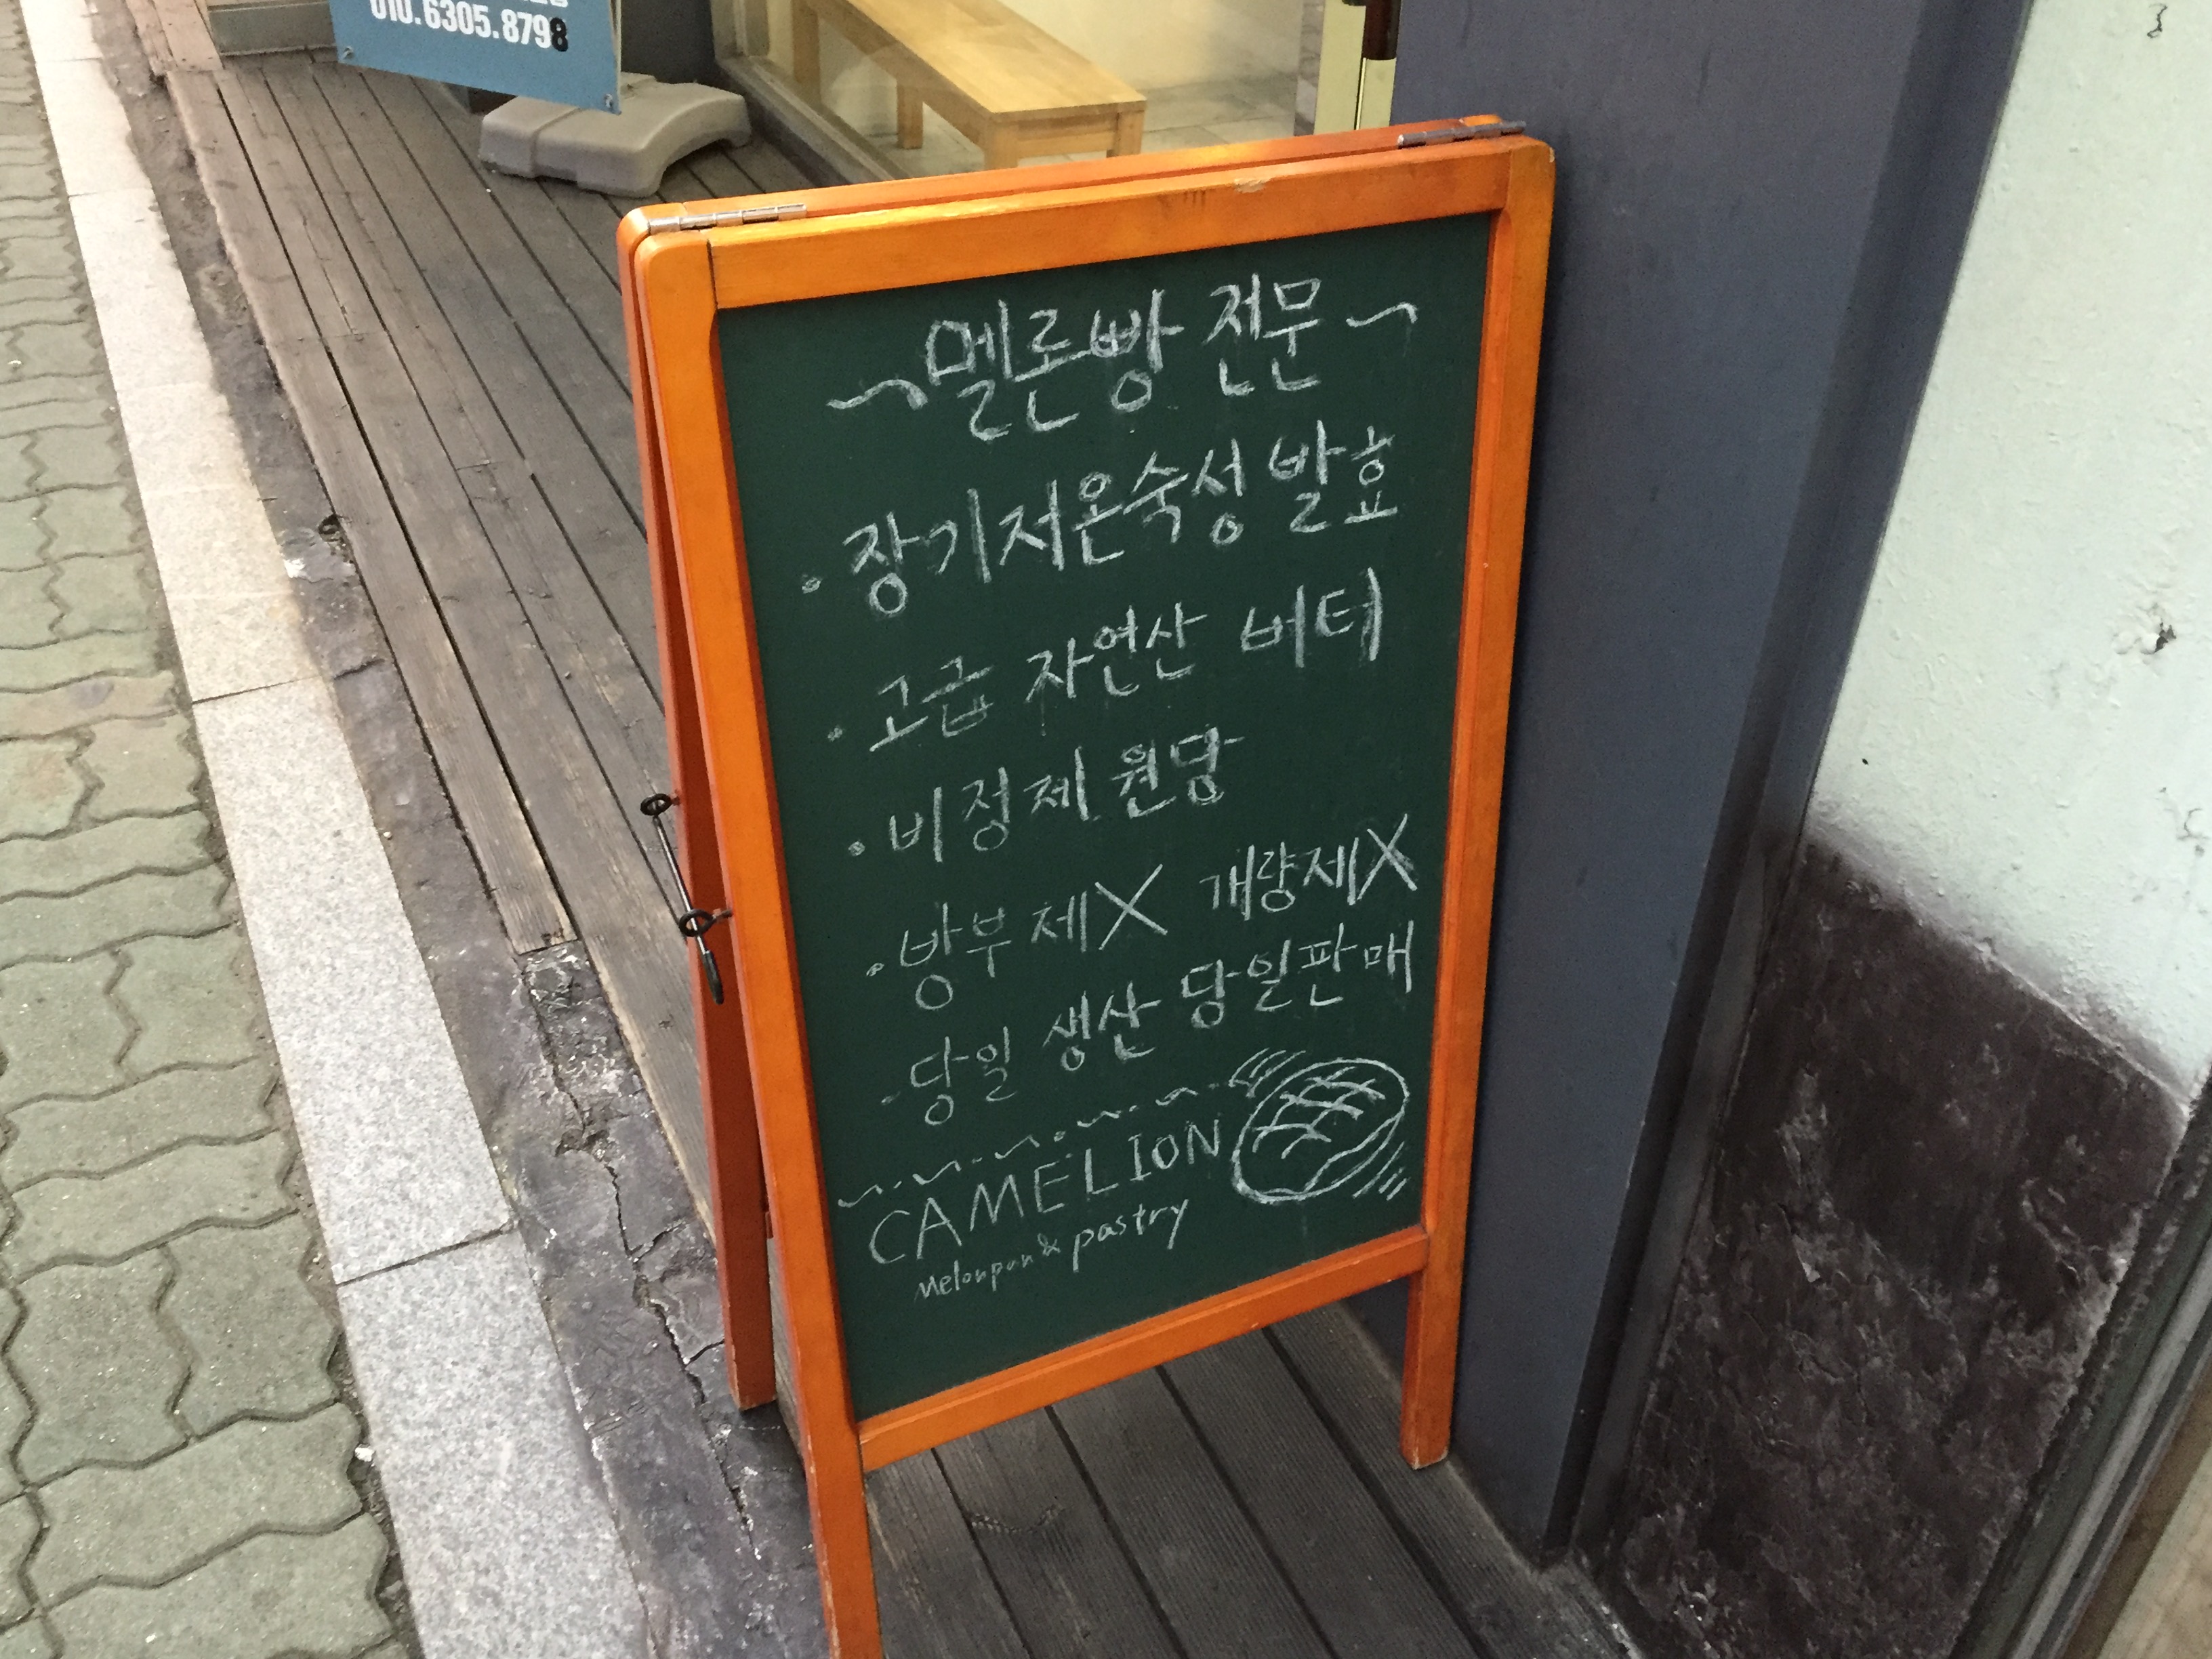 010.6305.8798
~멜론빵 전문~
· 장기저온숙성 발효
· 고급 자연산 버터
· 비정제 원당
· 방부제X 개량제X
· 당일 생산 당일판매
CAMELION
Melonpan & pastry